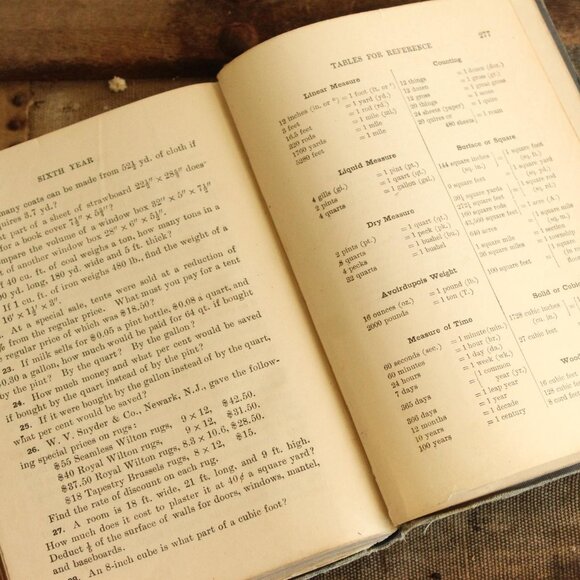 SIXTH YEAR
many coats can be made from 52½ yd. of cloth if
quires 3.7 yd.?
part of a sheet of strawboard 22½" × 28¾" does
for a book cover 7½" × 5¾"?
mpare the volume of a window box 32" × 5" × 7½"
t of another window box 28" × 6" × 5½".
f 40 cu. ft. of coal weighs a ton, how many tons in a
yd. long, 180 yd. wide and 5 ft. thick?
If 1 cu. ft. of iron weighs 480 lb., find the weight of a
16' × 1½' × 3".
At a special sale, tents were sold at a reduction of
from the regular price. What must you pay for a tent
regular price of which was $18.50?
23. If milk sells for $0.05 a pint bottle, $0.08 a quart, and
0.30 a gallon, how much would be paid for 64 qt. if bought
by the pint? By the quart? By the gallon?
24. How much money and what per cent would be saved
if bought by the quart instead of by the pint?
25. If it were bought by the gallon instead of by the quart,
what per cent would be saved?
26. W. V. Snyder & Co., Newark, N.J., gave the follow-
ing special prices on rugs:
$55 Seamless Wilton rugs, 9 × 12, $42.50.
$40 Royal Wilton rugs, 9 × 12, $31.50.
$37.50 Royal Wilton rugs, 8.3 × 10.6, $28.50.
$18 Tapestry Brussels rugs, 8 × 12, $15.
Find the rate of discount on each rug.
27. A room is 18 ft. wide, 21 ft. long, and 9 ft. high.
How much does it cost to plaster it at 40¢ a square yard?
Deduct of the surface of walls for doors, windows, mantel,
and baseboards.
An 8-inch cube is what part of a cubic foot?
TABLES FOR REFERENCE 277
Linear Measure
12 inches (in. or ") = 1 foot (ft. or ')
3 feet = 1 yard (yd.)
16.5 feet = 1 rod (rd.)
320 rods = 1 mile (mi.)
1760 yards = 1 mile
5280 feet = 1 mile
Liquid Measure
4 gills (gi.) = 1 pint (pt.)
2 pints = 1 quart (qt.)
4 quarts = 1 gallon (gal.)
Dry Measure
2 pints (pt.) = 1 quart (qt.)
8 quarts = 1 peck (pk.)
4 pecks = 1 bushel (bu.)
32 quarts = 1 bushel
Avoirdupois Weight
16 ounces (oz.) = 1 pound (lb.)
2000 pounds = 1 ton (T.)
Measure of Time
60 seconds (sec.) = 1 minute (min.)
60 minutes = 1 hour (hr.)
24 hours = 1 day (da.)
7 days = 1 week (wk.)
365 days = 1 common year
366 days = 1 leap year
12 months = 1 year
10 years = 1 decade
100 years = 1 century
Counting
12 things = 1 dozen (doz.)
12 dozen = 1 gross (gr.)
12 gross = 1 great gross
20 things = 1 score
24 sheets (paper) = 1 quire
20 quires or
480 sheets = 1 ream
Surface or Square
144 square inches (sq. in.)
9 square feet
30¼ square yards
272¼ square feet
160 square rods
43,560 square feet
640 acres
1 square mile
36 square miles
100 square feet
Solid or Cubic
1728 cubic inches (cu. in.)
27 cubic feet
Wood
16 cubic feet
128 cubic feet
8 cord feet